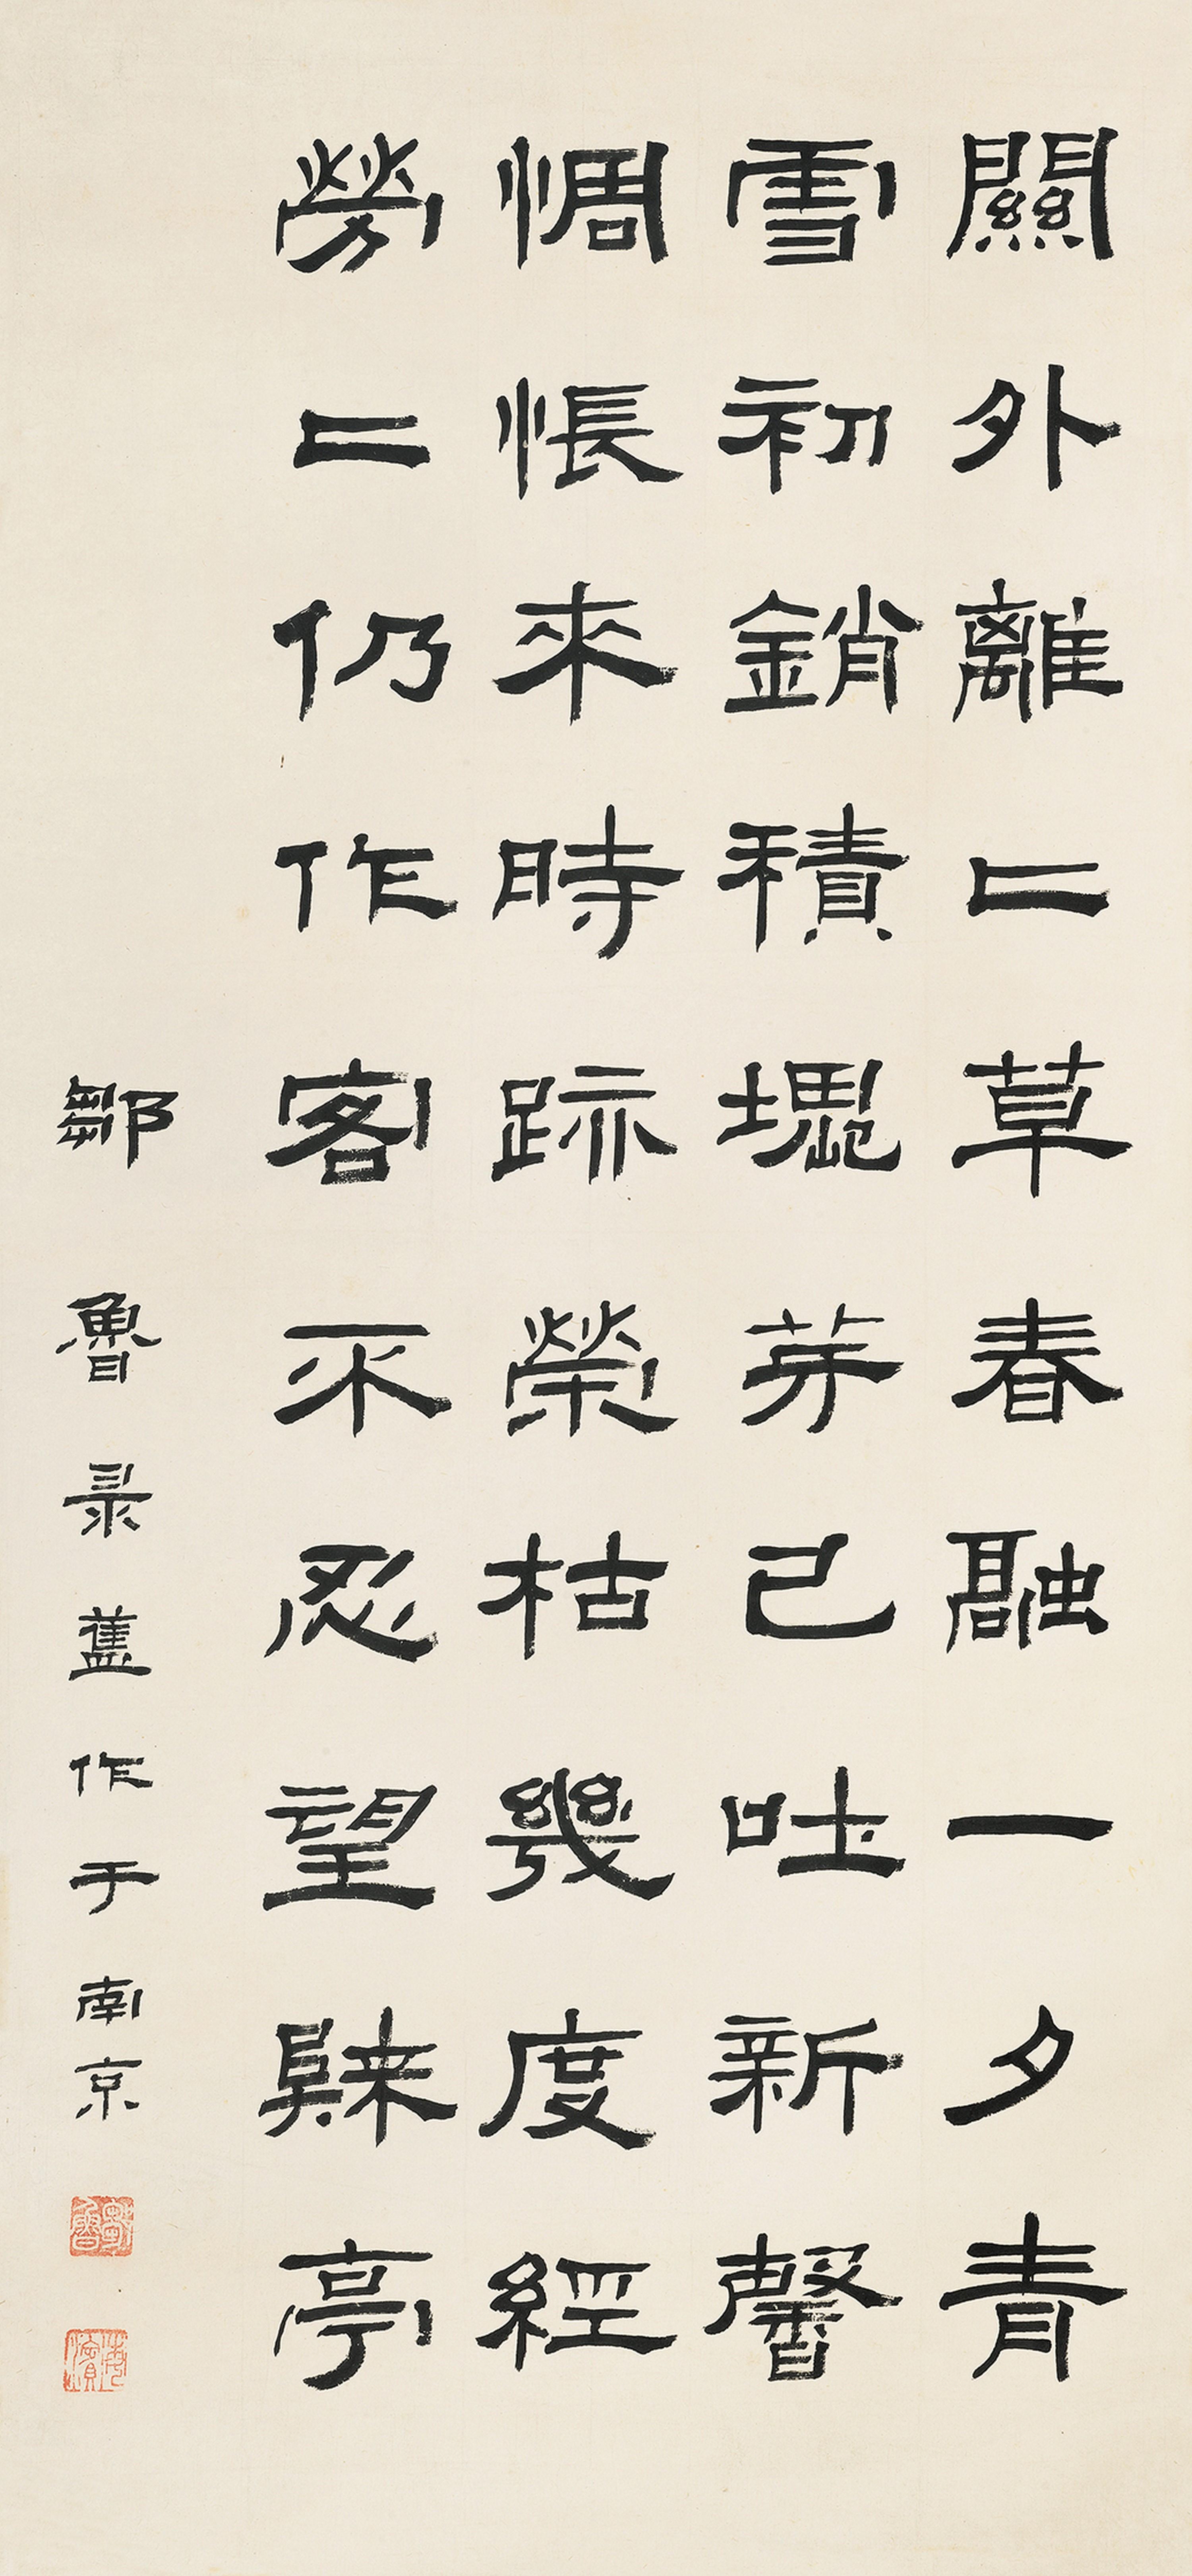 關外離〻草春融一夕青
雪初銷積塊芽已吐新馨
惆悵來時跡榮枯幾度經
勞〻仍作客不忍望亭
鄒魯录舊作于南京
鄒魯
海濱